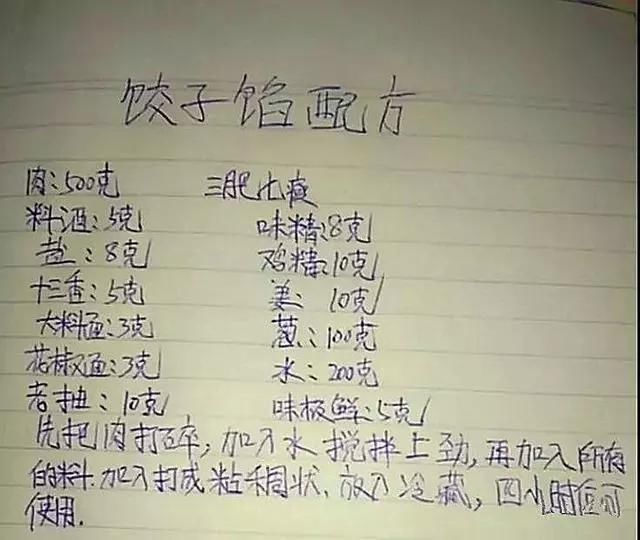 饺子馅配方
肉:500克 三肥七瘦
料酒:5克 味精:8克
盐:8克 鸡精:10克
十三香:5克 姜:10克
大料面:3克 葱:100克
花椒面:3克 水:200克
老抽:10克 味极鲜:5克
先把肉打碎,加入水搅拌上劲,再加入所有
的料.加入打成粘稠状.放入冷藏,四小时后可
使用.